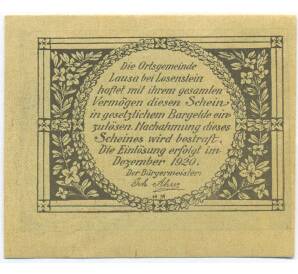 Die Ortsgemeinde
Lausa bei Losenstein
haftet mit ihrem gesamten
Vermögen diesen Schein
in gesetzlichem Bargelde ein-
zulösen. Nachahmung dieses
Scheines wird bestraft.
Die Einlösung erfolgt im
Dezember 1920.
Der Bürgermeister: